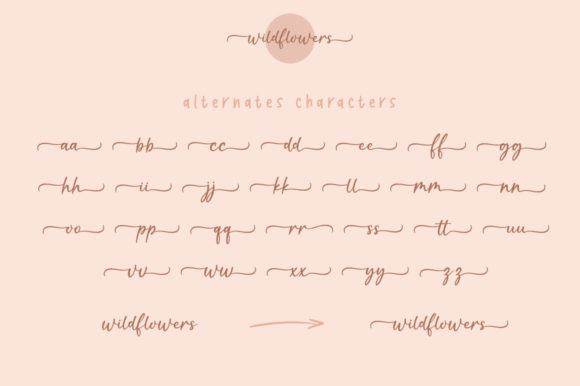 wildflowers
alternates characters
aa bb cc dd ee ff gg
hh ii jj kk ll mm nn
oo pp qq rr ss tt uu
vv ww xx yy zz
wildflowers wildflowers